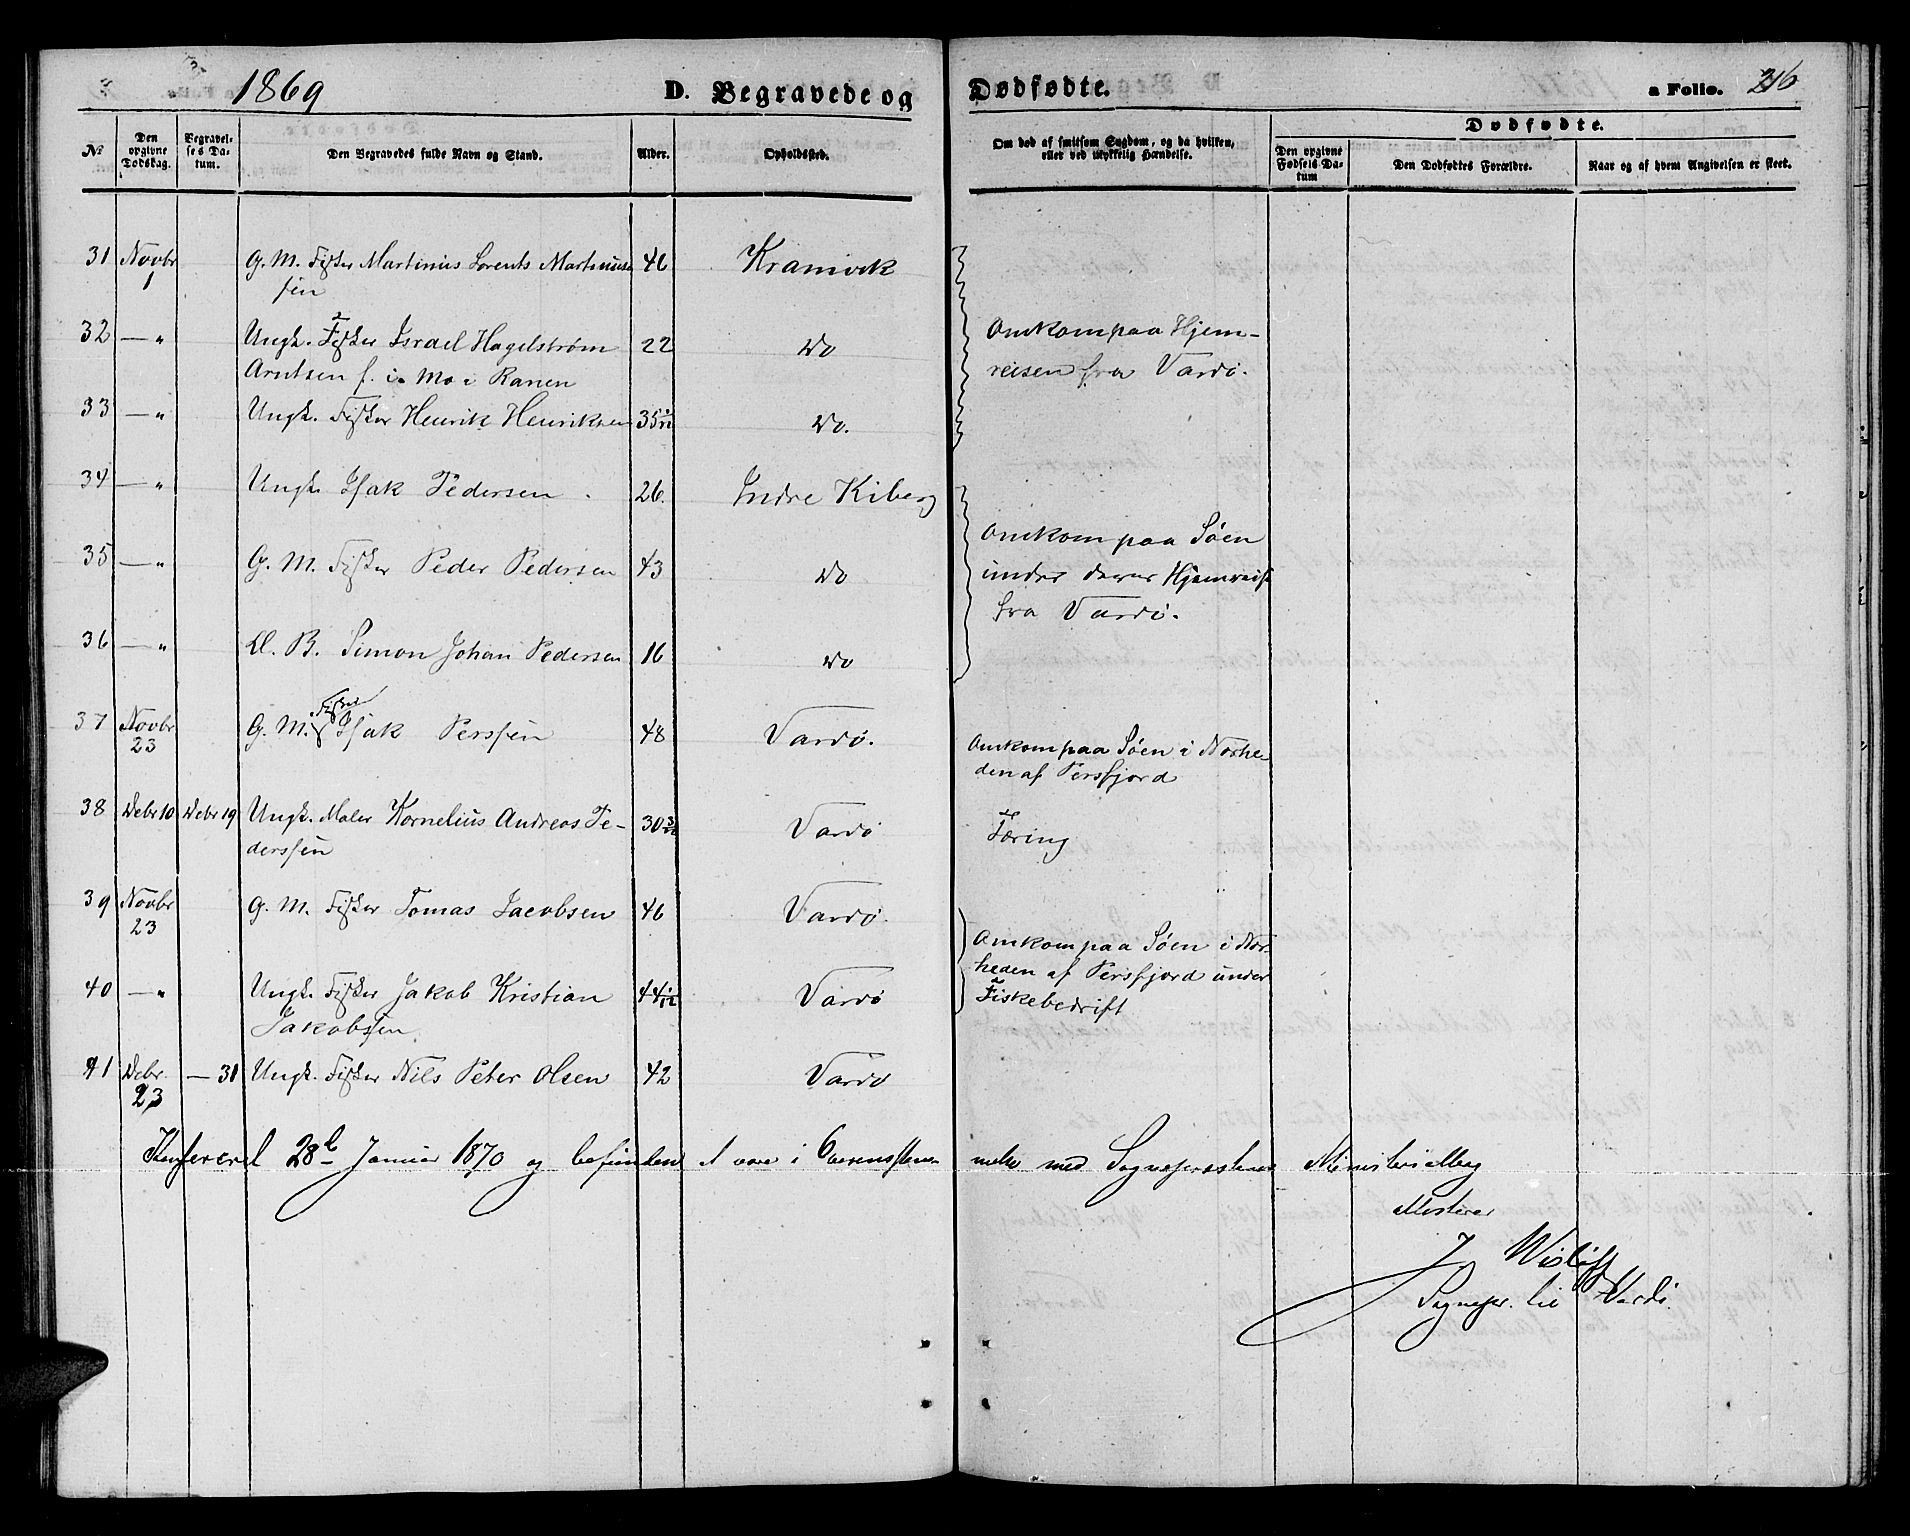 1869 D. Begravede og Dødfødte. a Folio. 216
Dødfødte.
No Den opgivne Dødsdag. Begravelses Datum. Den Begravedes fulde Navn og Stand. Alder. Opholdssted. Om død af smitsom Sygdom, og da hvilken, eller ved ulykkelig Hændelse. Den opgivne Fødsels Datum Den Dødfødtes Forældre. Naar og af hvem Angivelsen er skeet.
31 Novbr 1 G. M. Fisker Martinius Lorents Martinius- 46 Kramvik
sen
32 — „ Ungk. Fisker Israel Hagelstrøm 22 Do Omkom paa Hjem-
Arntsen f. i Mo i Ranen reisen fra Vardø.
33 — „ Ungk. Fisker Henrik Henriksen 35 1/12 Do.
34 — „ Ungk. Isak Pedersen 26. Indre Kiberg
35 — „ G. M. Fisker Peder Pedersen 43 Do Omkom paa Søen
under deres Hjemreise
fra Vardø.
36 — „ U. B. Simon Johan Pedersen 16 Do
37 Novbr 23 G. M. Fisker Isak Perssen 48 Vardø. Omkom paa Søen i Nærhe-
den af Persfjord
38 Debr 10 Debr 19 Ungk. Maler Kornelius Andreas Pe- 30 3/12 Vardø Tæring
derssen
39 Novbr 23 G. M. Fisker Tomas Jacobsen 46 Vardø. Omkom paa Søen i Nær-
heden af Persfjord under
40 — „ Ungk. Fisker Jakob Kristian 44 1/12 Vardø Fiskebedrift
Jakobsen.
41 Debr. 23 — 31 Ungk. Fisker Nils Peter Olsen 42 Vardø
Konfereret 28de Januar 1870 og befunden at være i Overensstem- melse med Sognepræstens Ministerialbog
Attesterer
J. Wisløff
Sognepr. til Vardø.